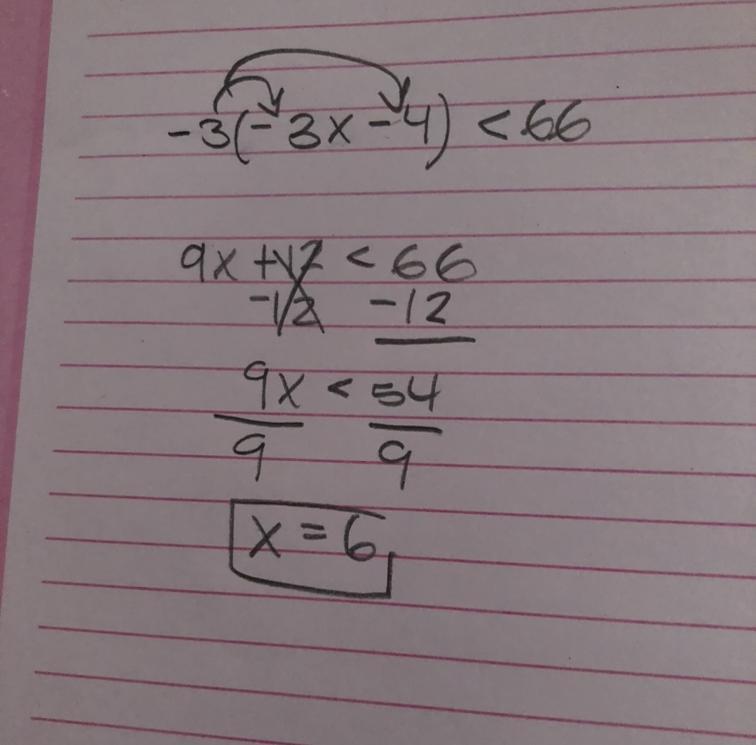 -3(-3x-4) < 66
9x + 12 < 66
-12 -12
9x < 54
9 9
x = 6